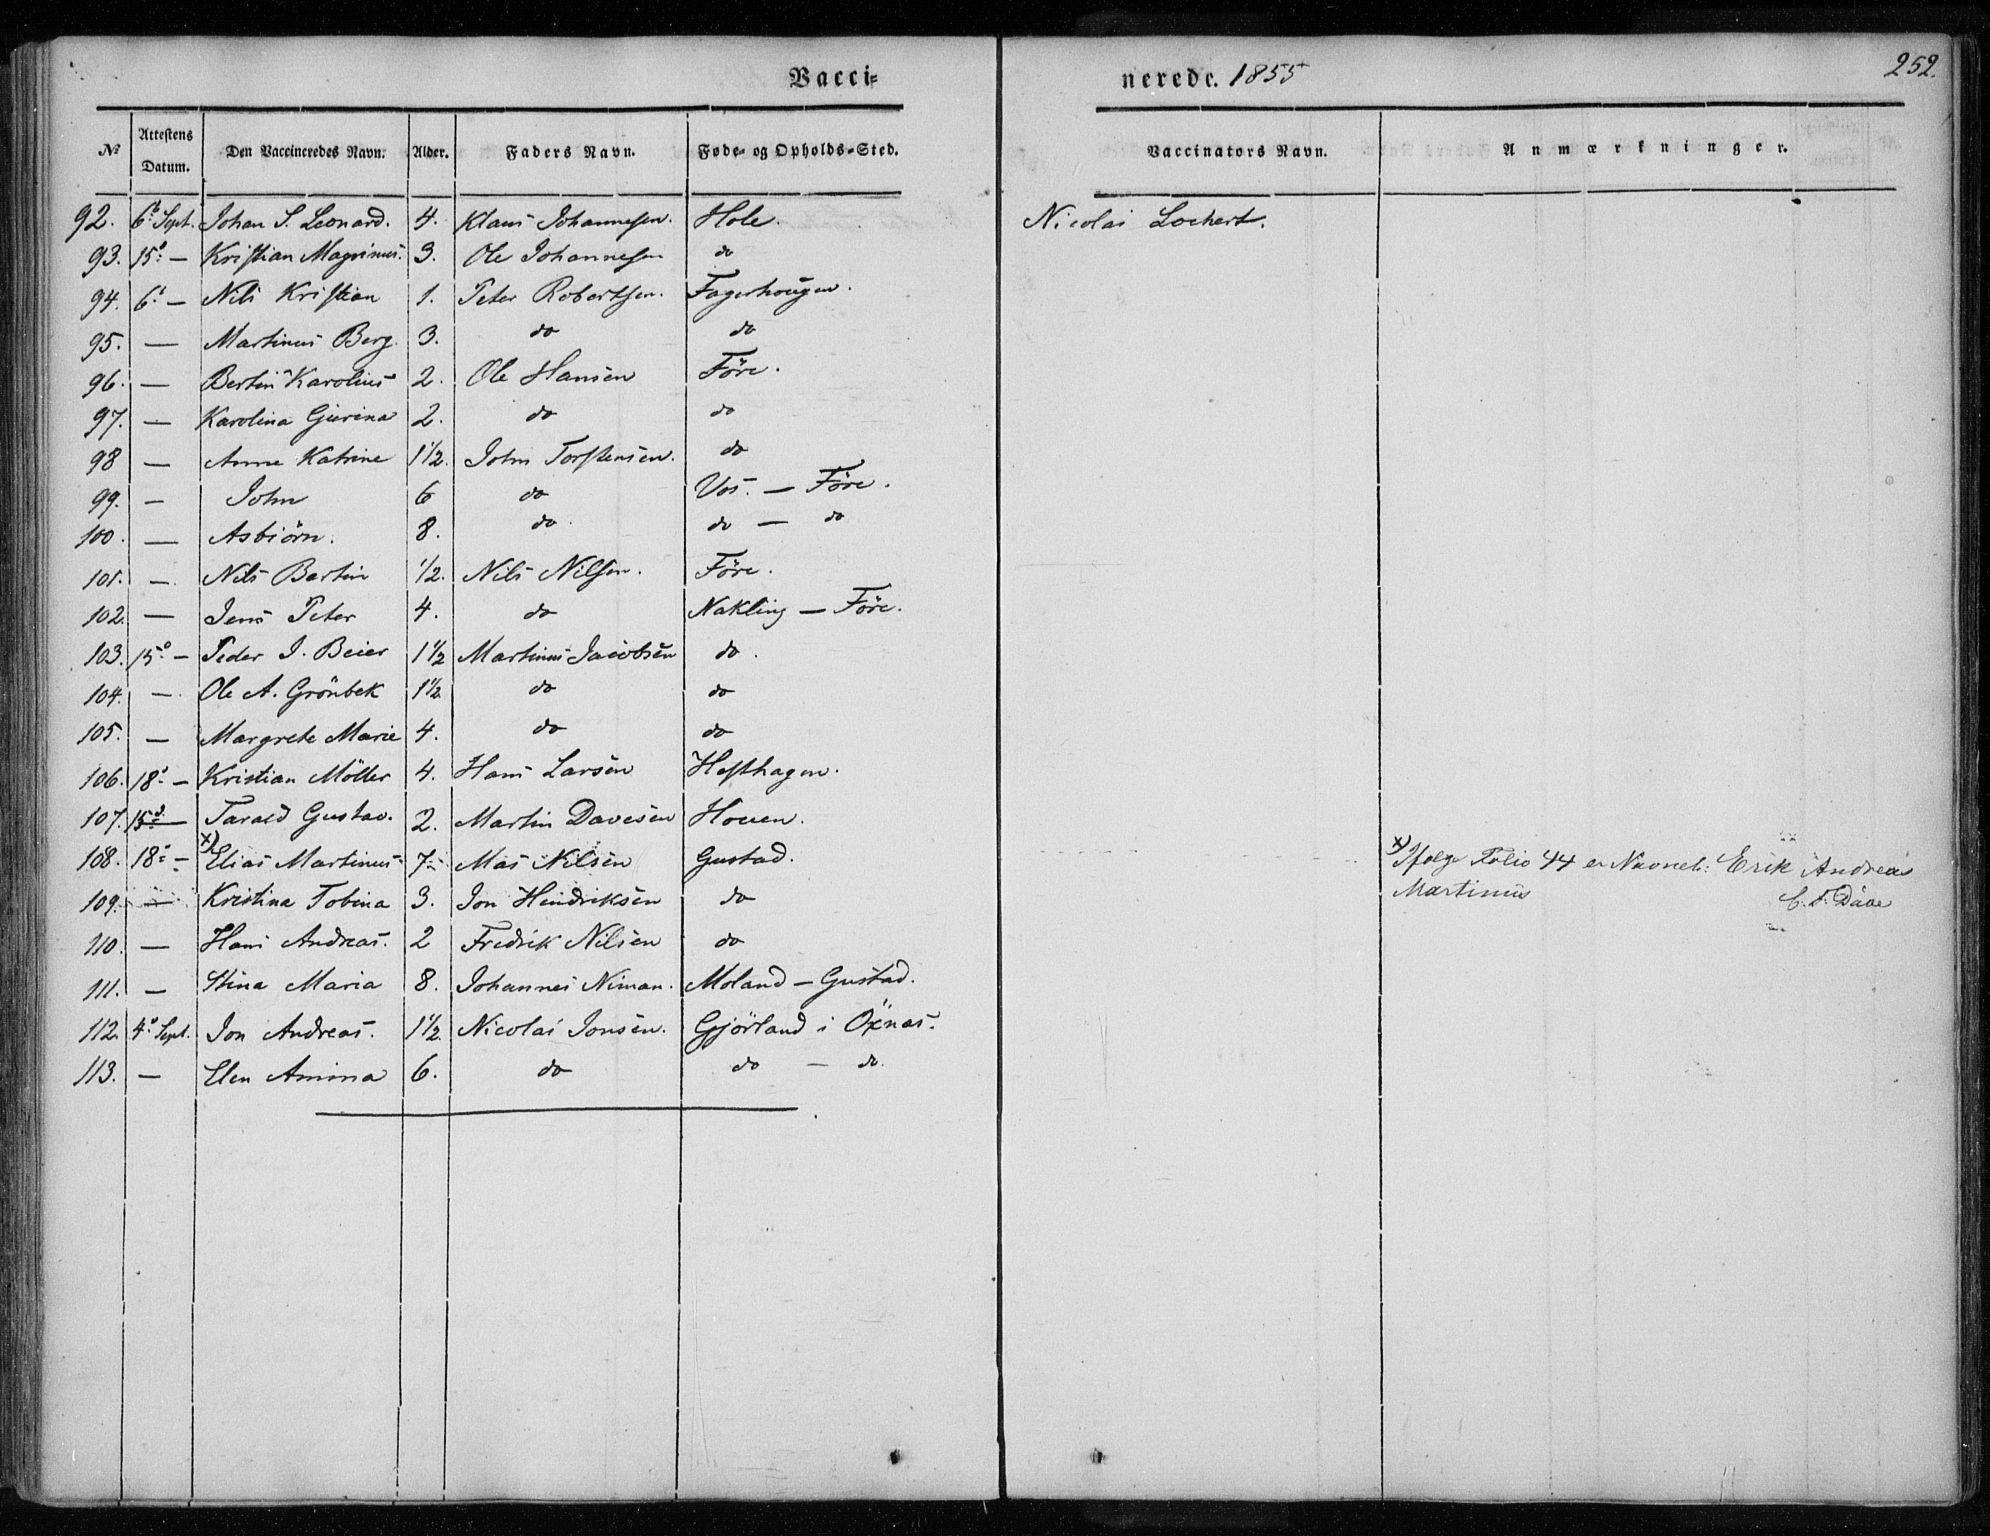 Vacci-
nerede. 1855
252.
No
Attestens Datum.
Den Vaccineredes Navn.
Alder.
Faders Navn.
Føde- og Opholds-Sted.
Vaccinators Navn.
Anmærkninger.
92. 6 Sept. Johan S. Leonard. 4. Klaus Johannesen. Hole. Nicolai Lochert.
93. 15 — Kristian Magnimus. 3. Ole Johannesen do
94. 6 — Nils Kristian 1. Peter Robertsen. Fagerhougen.
95. — Martinus Berg. 3. do do
96. — Bertin Karolius 2. Ole Hansen Före.
97. — Karolina Gjurina 2. do do
98 — Anne Katrine 1½. John Torstensen. do
99. — John 6 do Vos. — Före.
100. — Asbiörn. 8. do. do — do
101. — Nils Bartin ½. Nils Nilsen. Före.
102. — Jens Peter 4. do Nakling — Före.
103. 15 — Peder J. Beier 1½ Martinus Jacobsen do.
104. — Ole A. Grönbek 1½. do do
105. — Margrete Marie 4. do do
106. 18 — Kristian Möller 4. Hans Larsen Hesthagen.
107. 15 — Tarald Gustav. 2. Martin Davesen Houen.
108. 18 — x) Elias Martinus 7 Mas Nilsen Gustad. x) Ifølge Folio 44 er Navnet: Erik Andreas
Martinus
109. — Kristina Tobina 3. Jon Hendriksen do
110. — Hans Andreas. 2 Fredrik Nilsen do
111. — Stina Maria 8. Johannes Niman. Moland — Gustad.
112. 4 Sept. Jon Andreas. 1½. Nicolai Jonsen. Gjörland i Öxnas.
113. — Elen Amina 6. do do — do.